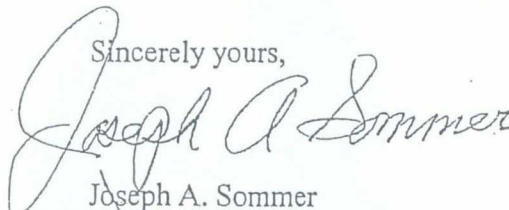 Sincerely yours,
Joseph A Sommer
Joseph A. Sommer